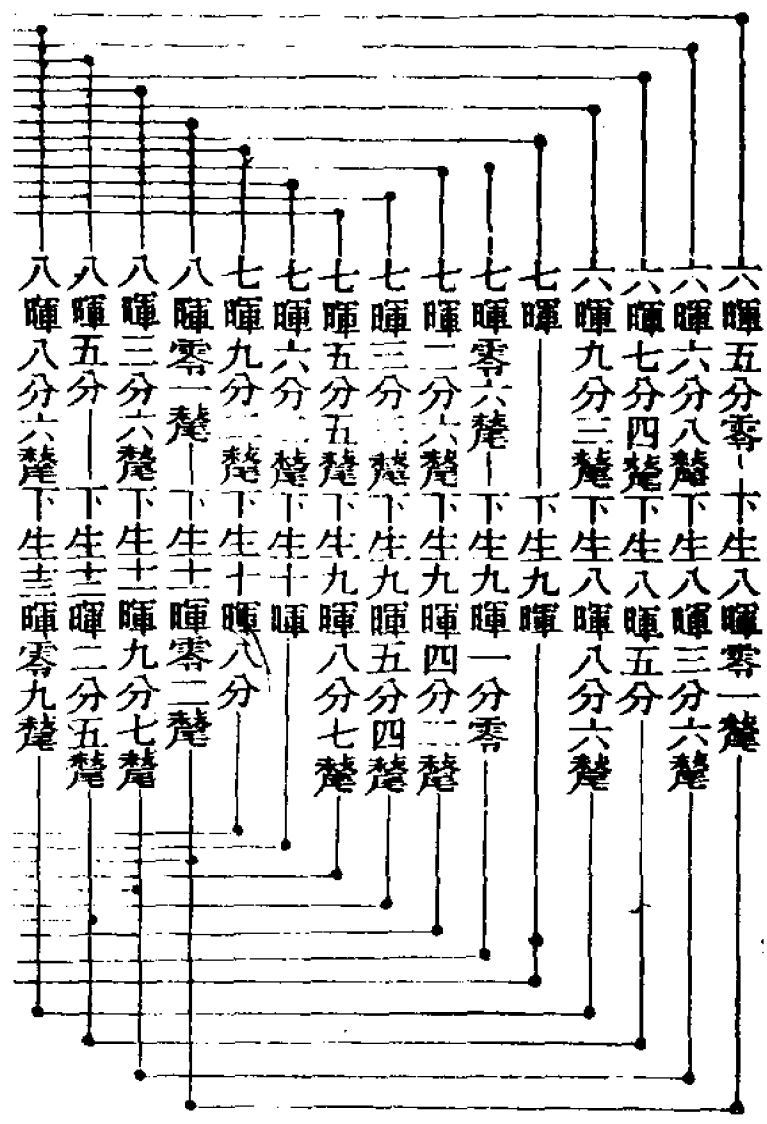 六暉五分零下生八暉零一氂
六暉六分八氂下生八暉三分六氂
六暉七分四氂下生八暉五分
六暉九分三氂下生八暉八分六氂
七暉下生九暉
七暉零六氂下生九暉一分零
七暉二分六氂下生九暉四分二氂
七暉三分氂下生九暉五分四氂
七暉五分五氂下生九暉八分七氂
七暉六分氂下生十暉
七暉九分二氂下生十暉八分
八暉零一氂下生十一暉零二氂
八暉三分六氂下生十一暉九分七氂
八暉五分下生十二暉二分五氂
八暉八分六氂下生十三暉零九氂